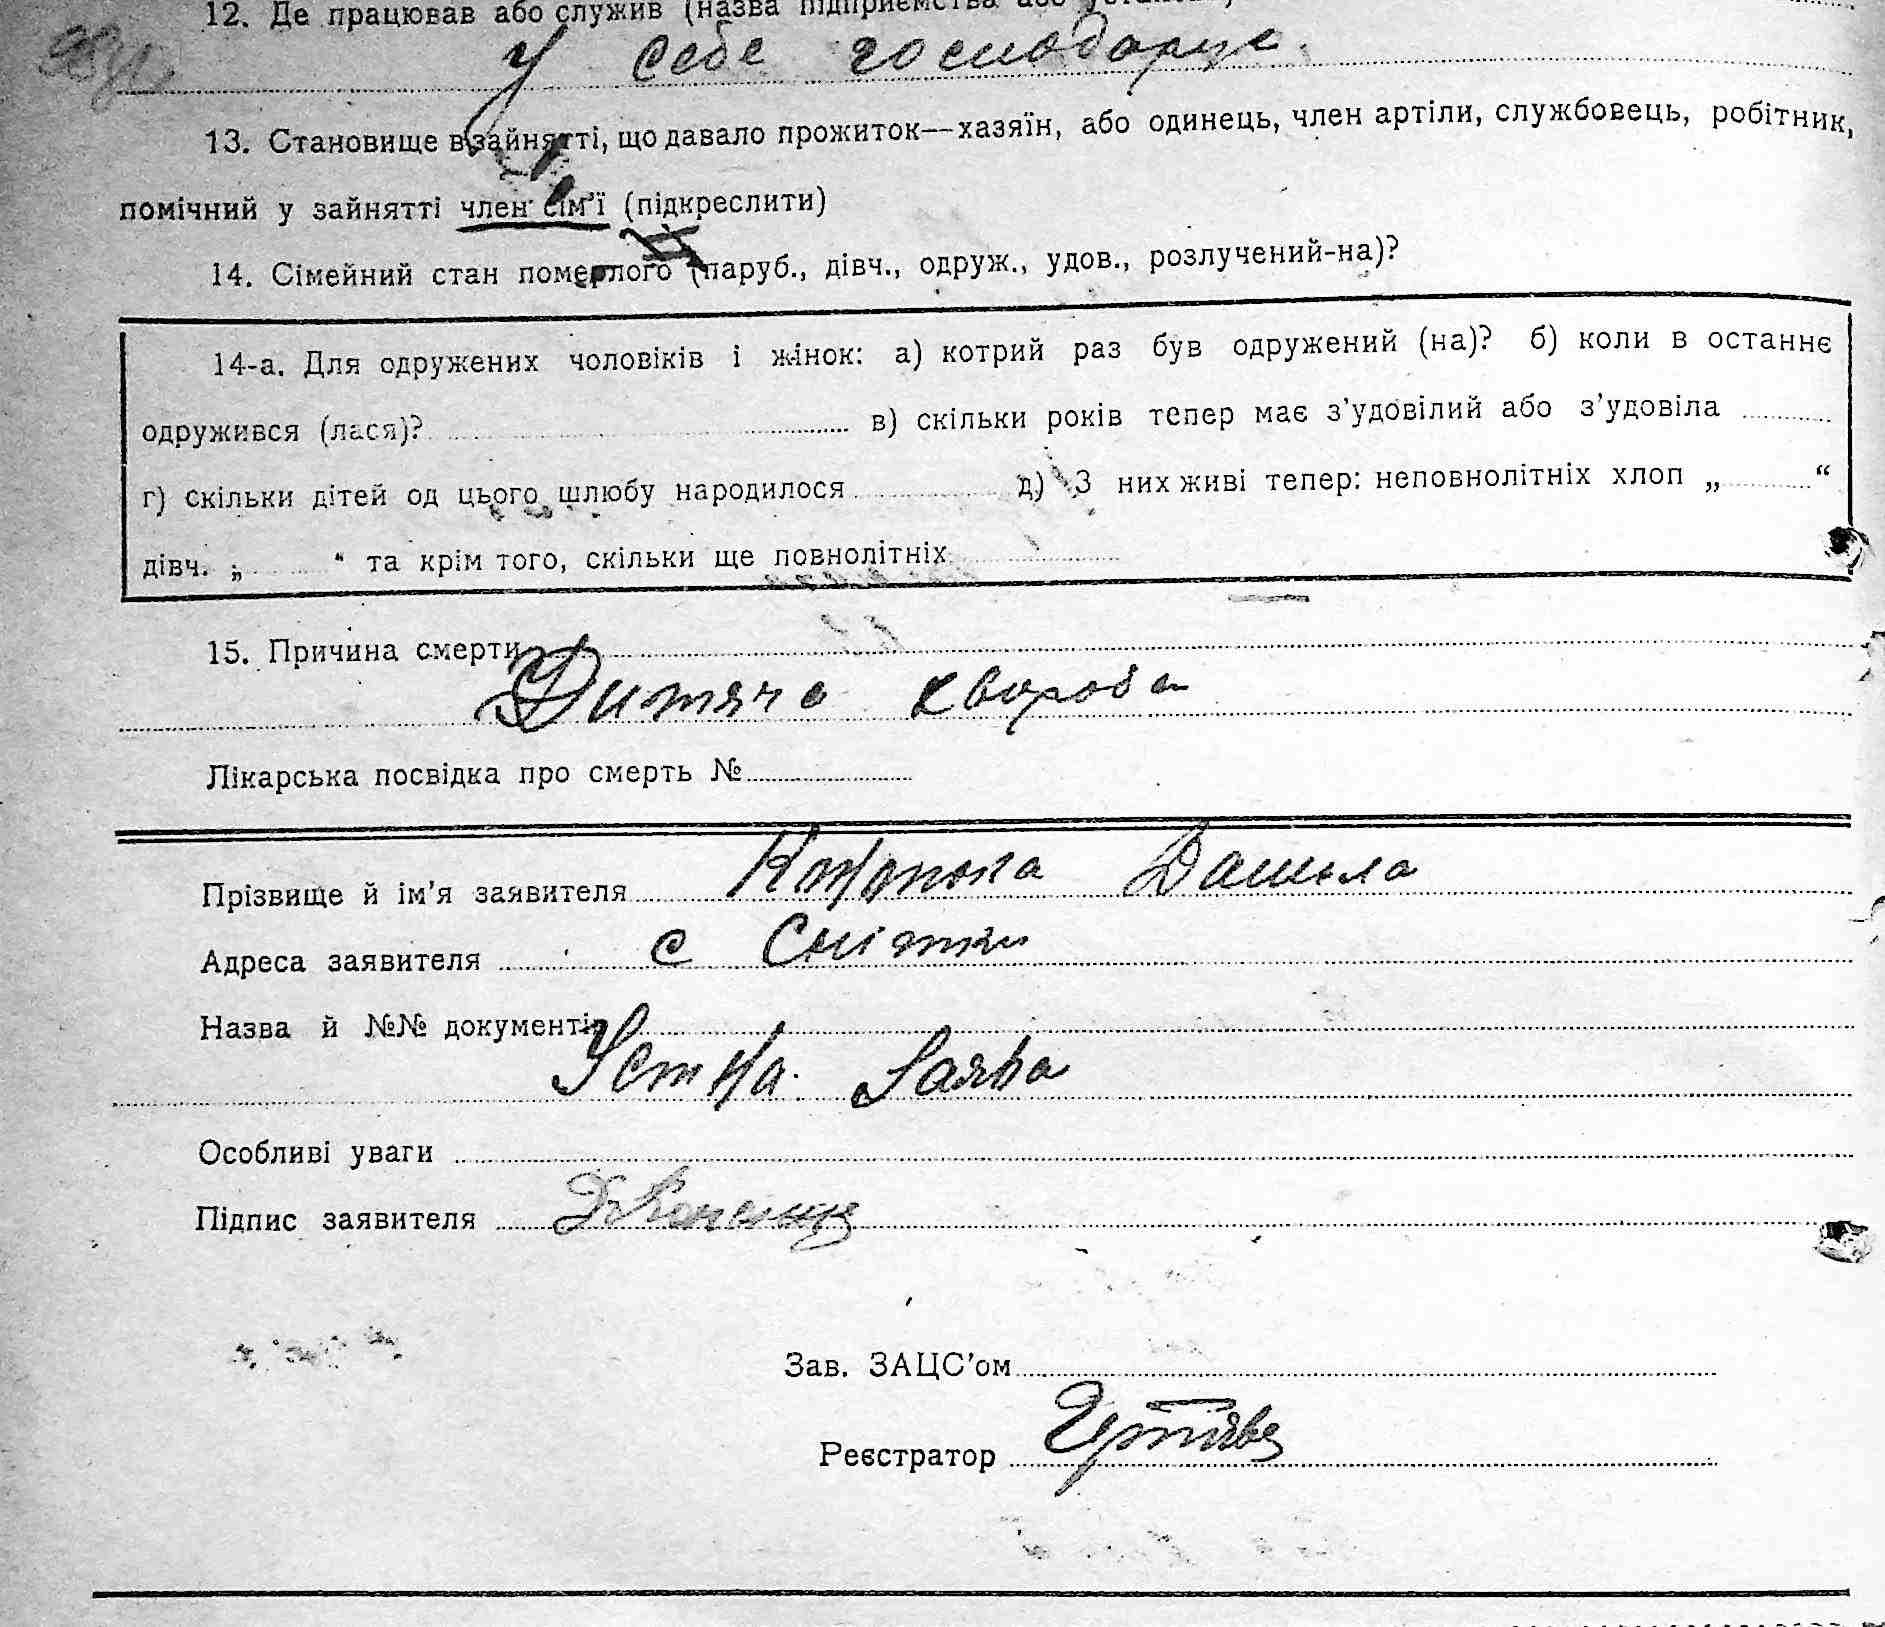 12. Де працював або служив (назва підприємства або установи)
у себе господарue
13. Становище в зайнятті, що давало прожиток—хазяїн, або одинець, член артіли, службовець, робітник,
помічний у зайнятті член сім'ї (підкреслити)
14. Сімейний стан померлого (паруб., дівч., одруж., удов., розлучений-на)?
14-а. Для одружених чоловіків і жінок: а) котрий раз був одружений (на)? б) коли в останнє
одружився (лася)? в) скільки років тепер має з'удовілий або з'удовіла
г) скільки дітей од цього шлюбу народилося д) З них живі тепер: неповнолітніх хлоп „ “
дівч. „ “ та крім того, скільки ще повнолітніх
15. Причина смерти
Дитяча хвороба
Лікарська посвідка про смерть №
Прізвище й ім'я заявителя Данило
Адреса заявителя с Снітки
Назва й №№ документів
Устна Заява
Особливі уваги
Підпис заявителя
Зав. ЗАЦС'ом
Реєстратор